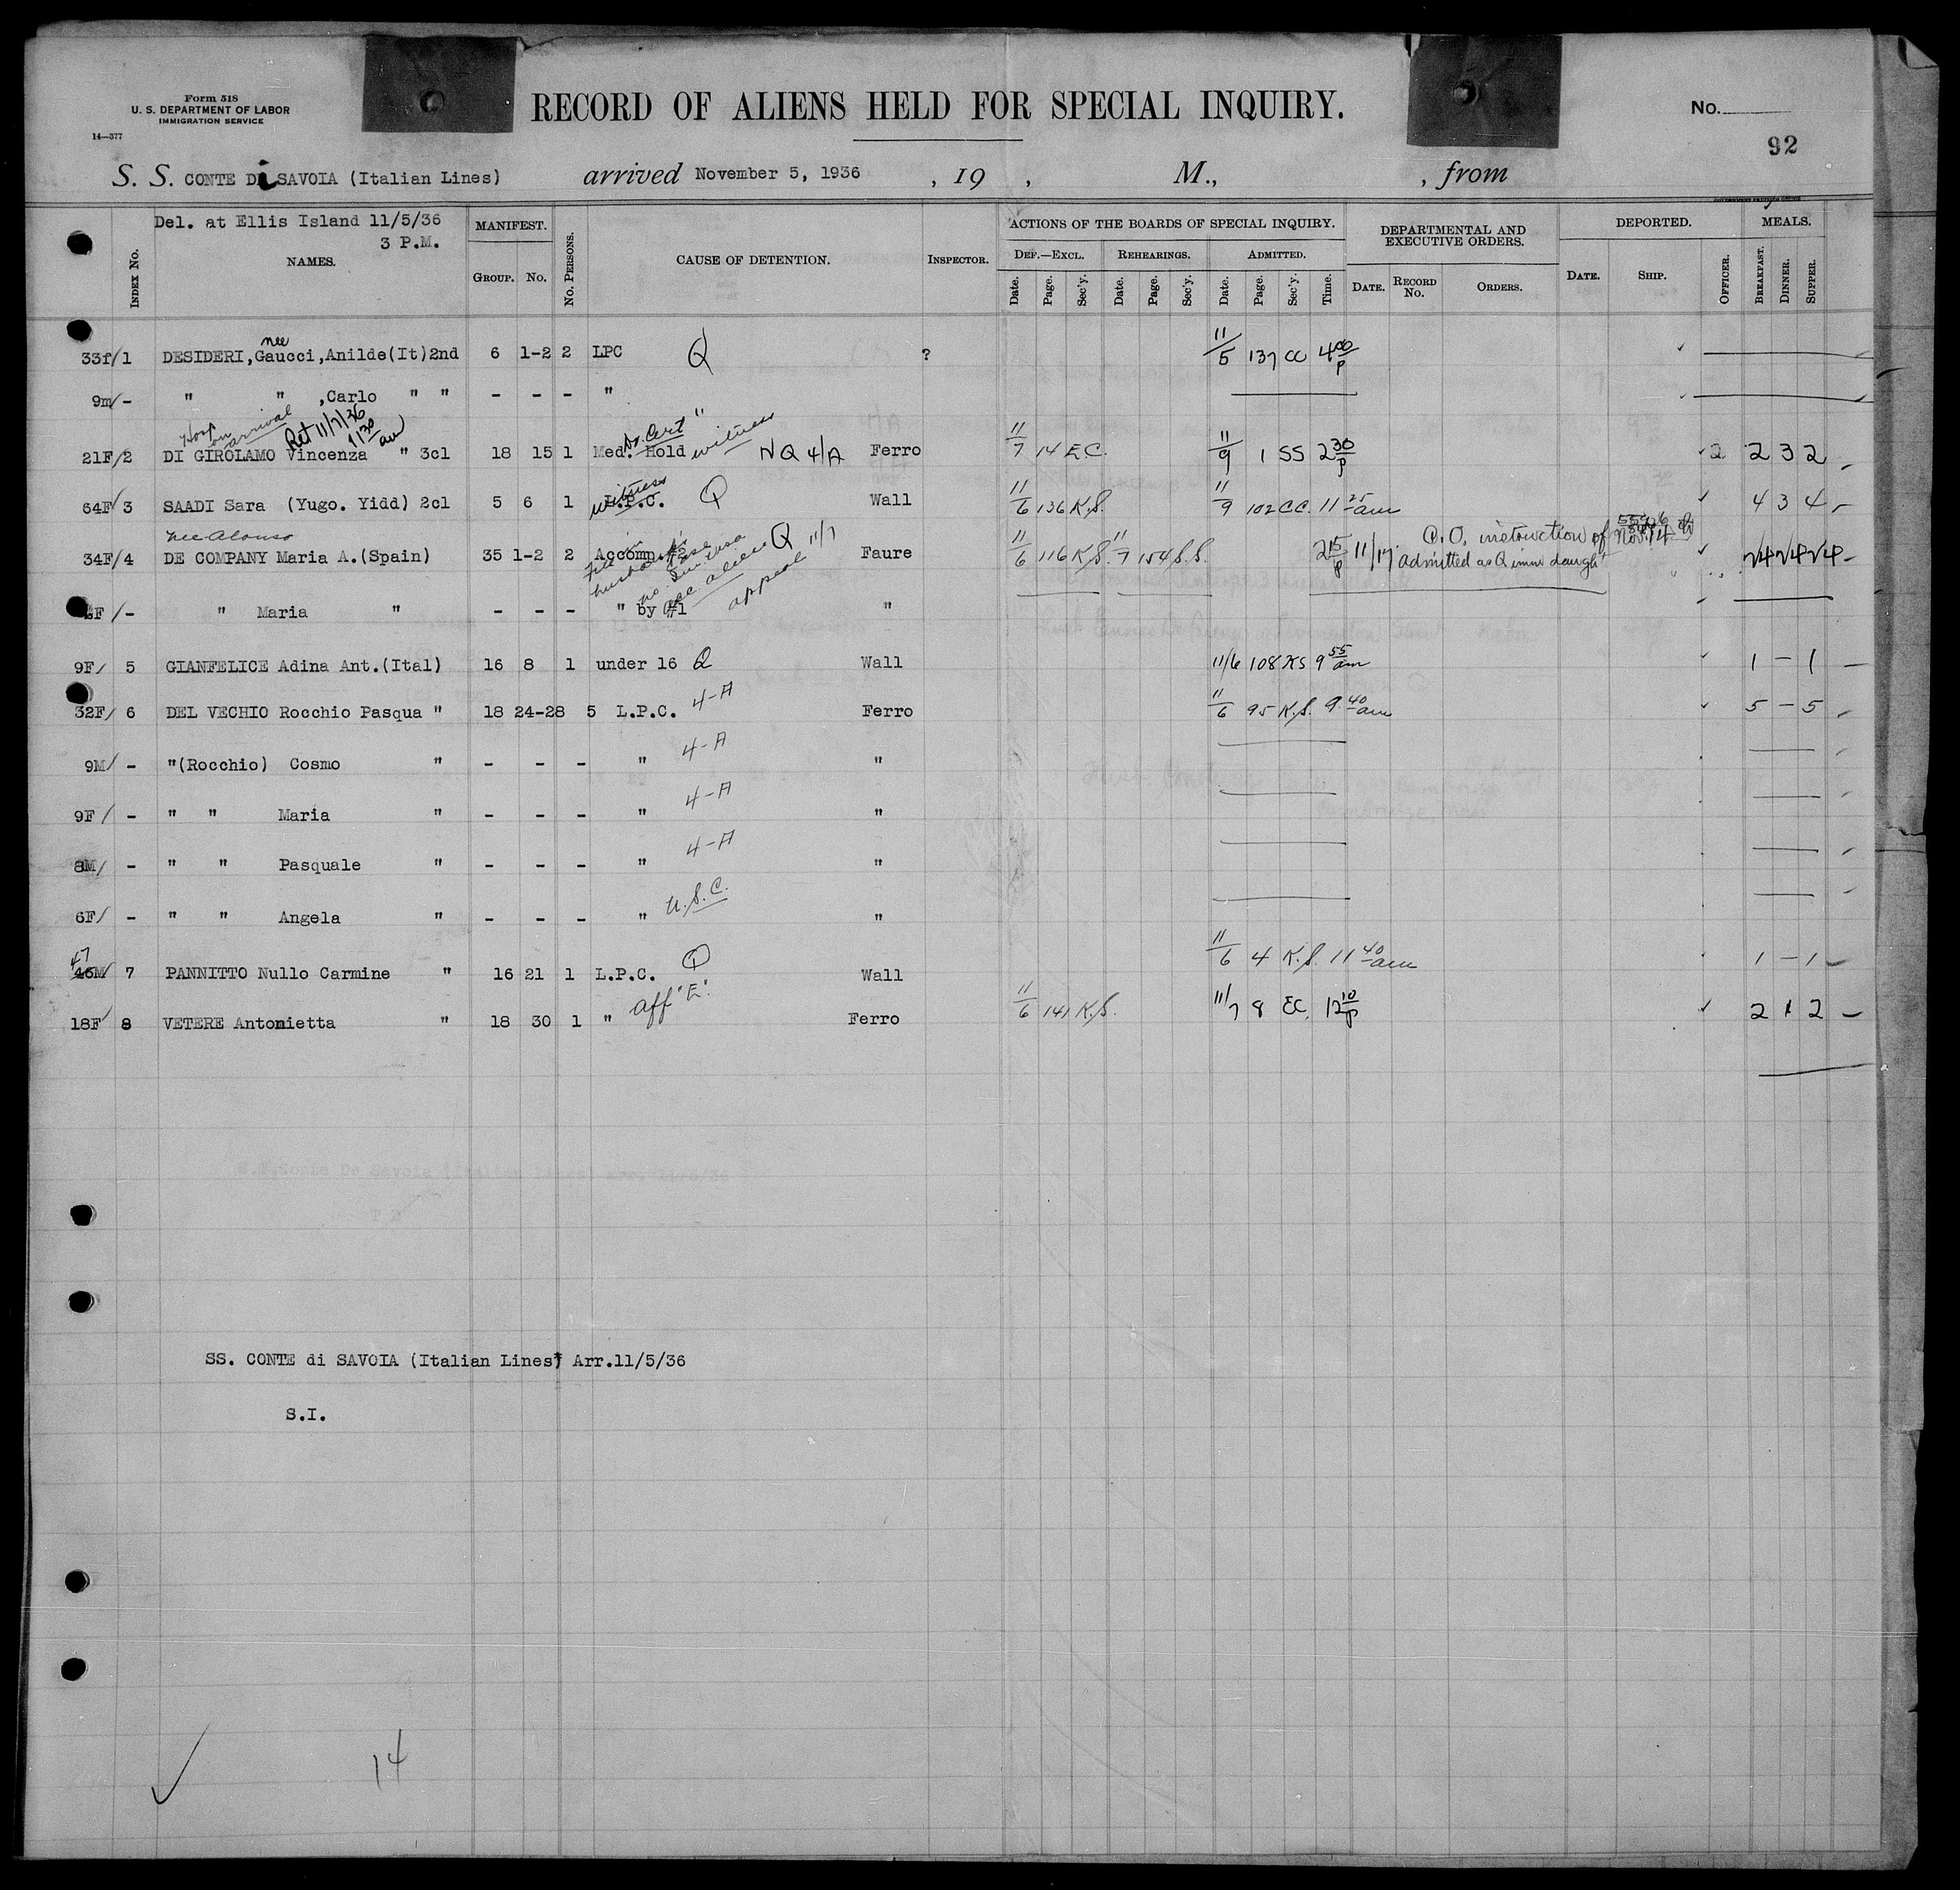 Form 518
U. S. DEPARTMENT OF LABOR
IMMIGRATION SERVICE
14—377
RECORD OF ALIENS HELD FOR SPECIAL INQUIRY.
No.
92
S. S. CONTE Di SAVOIA (Italian Lines) arrived November 5, 1936 , 19 , M., , from
Del. at Ellis Island 11/5/36
3 P.M.
INDEX No. NAMES. MANIFEST. GROUP. No. No. PERSONS. CAUSE OF DETENTION. INSPECTOR.
ACTIONS OF THE BOARDS OF SPECIAL INQUIRY. DEF.—EXCL. REHEARINGS. ADMITTED.
Date. Page. Sec'y. Date. Page. Sec'y. Date. Page. Sec'y. Time.
DEPARTMENTAL AND EXECUTIVE ORDERS. DATE. RECORD No. ORDERS.
DEPORTED. DATE. SHIP. OFFICER. MEALS. BREAKFAST. DINNER. SUPPER.
nee
33f/ 1 DESIDERI,Gaucci,Anilde(It)2nd 6 1-2 2 LPC Q ? 11/5 137 CC 4 00 p
9m/ - " " ,Carlo " " - - - "
Hosp on arrival Ret 11/7/36 1130 am
21F/ 2 DI GIROLAMO Vincenza " 3cl 18 15 1 Med. Hold No. Cert " witness NQ 4/A Ferro 11/7 14 E.C. 11/9 1 SS 2 30 p 2 2 3 2
64F/ 3 SAADI Sara (Yugo. Yidd) 2cl 5 6 1 L.P.C. witness Q Wall 11/6 136 K.S. 11/9 102 CC. 11 25 am 4 3 4
nee Alonso
34F/ 4 DE COMPANY Maria A.(Spain) 35 1-2 2 Accomp. #2 Q 11/7 appeal Faure 11/6 116 K.S. 11/7 154 S.S. 2 15 p 11/17 C.O. instruction of Nov. 14
Admitted as Q imm daugh
F/ - " Maria " - - - " by #1 "
9F/ 5 GIANFELICE Adina Ant.(Ital) 16 8 1 under 16 Q Wall 11/6 108 KS 9 55 am 1 - 1
32F/ 6 DEL VECHIO Rocchio Pasqua " 18 24-28 5 L.P.C. 4-A Ferro 11/6 95 K.S. 9 40 am 5 - 5
9M/ - "(Rocchio) Cosmo " - - - " 4-A "
9F/ - " " Maria " - - - " 4-A "
8M/ - " " Pasquale " - - - " 4-A "
6F/ - " " Angela " - - - " U.S.C. "
47
46M/ 7 PANNITTO Nullo Carmine " 16 21 1 L.P.C. Q Wall 11/6 4 K.S. 11 40 am 1 - 1
18F/ 8 VETERE Antonietta " 18 30 1 " aff "E". Ferro 11/6 141 K.S. 11/7 8 EC. 12 10 p 2 1 2
SS. CONTE di SAVOIA (Italian Lines) Arr.11/5/36
S.I.
14